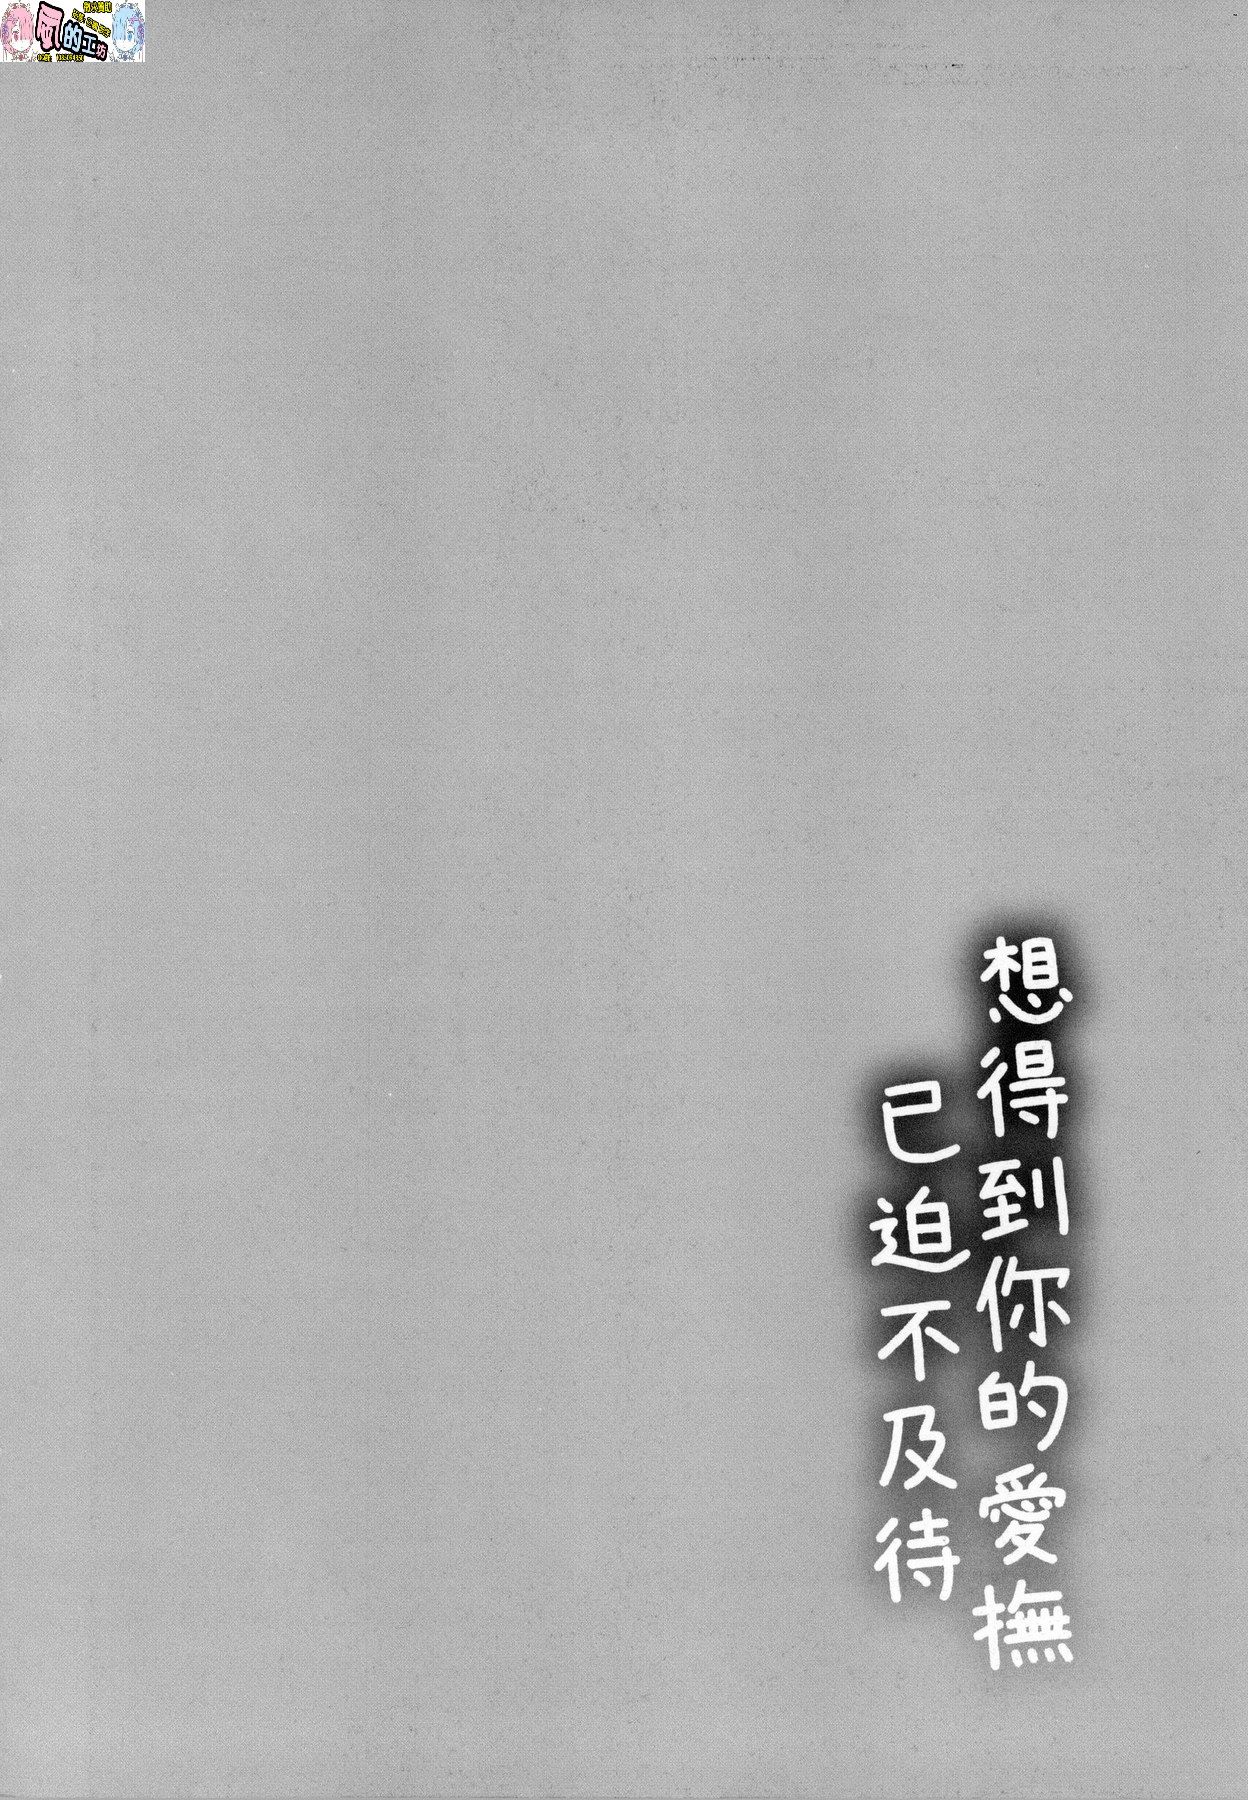 風的工坊
想得到你的愛撫
已迫不及待